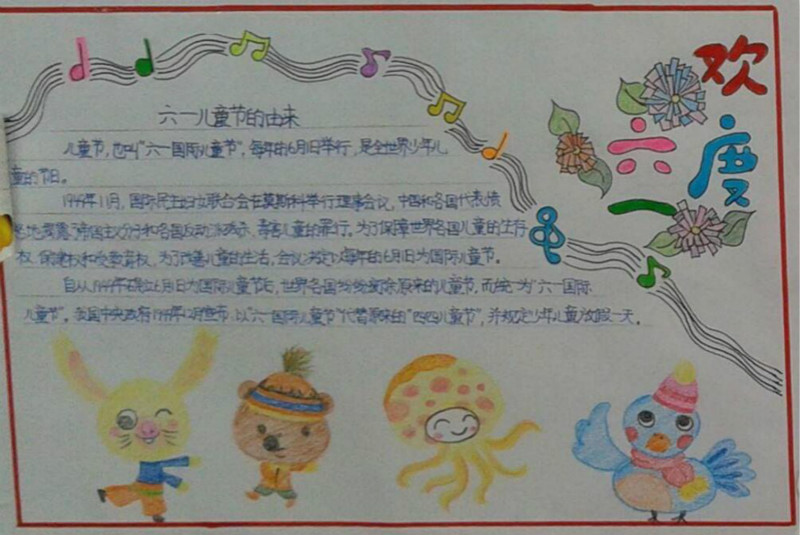 欢度
六一
六一儿童节的由来
儿童节，也叫“六一国际儿童节”，每年的6月1日举行，是全世界少年儿
童的节日。
1949年11月，国际民主妇女联合会在莫斯科举行理事会议，中国和各国代表愤
怒地揭露了帝国主义分子和各国反动派残杀、毒害儿童的罪行。为了保障世界各国儿童的生存
权、保健权和受教育权，为了改善儿童的生活，会议决定以每年的6月1日为国际儿童节。
自从1949年确立6月1日为国际儿童节后，世界各国纷纷废除原来的儿童节，而统一为“六一国际
儿童节”。我国中央政府1949年12月宣布，以“六一国际儿童节”代替原来的“四四儿童节”，并规定少年儿童放假一天。